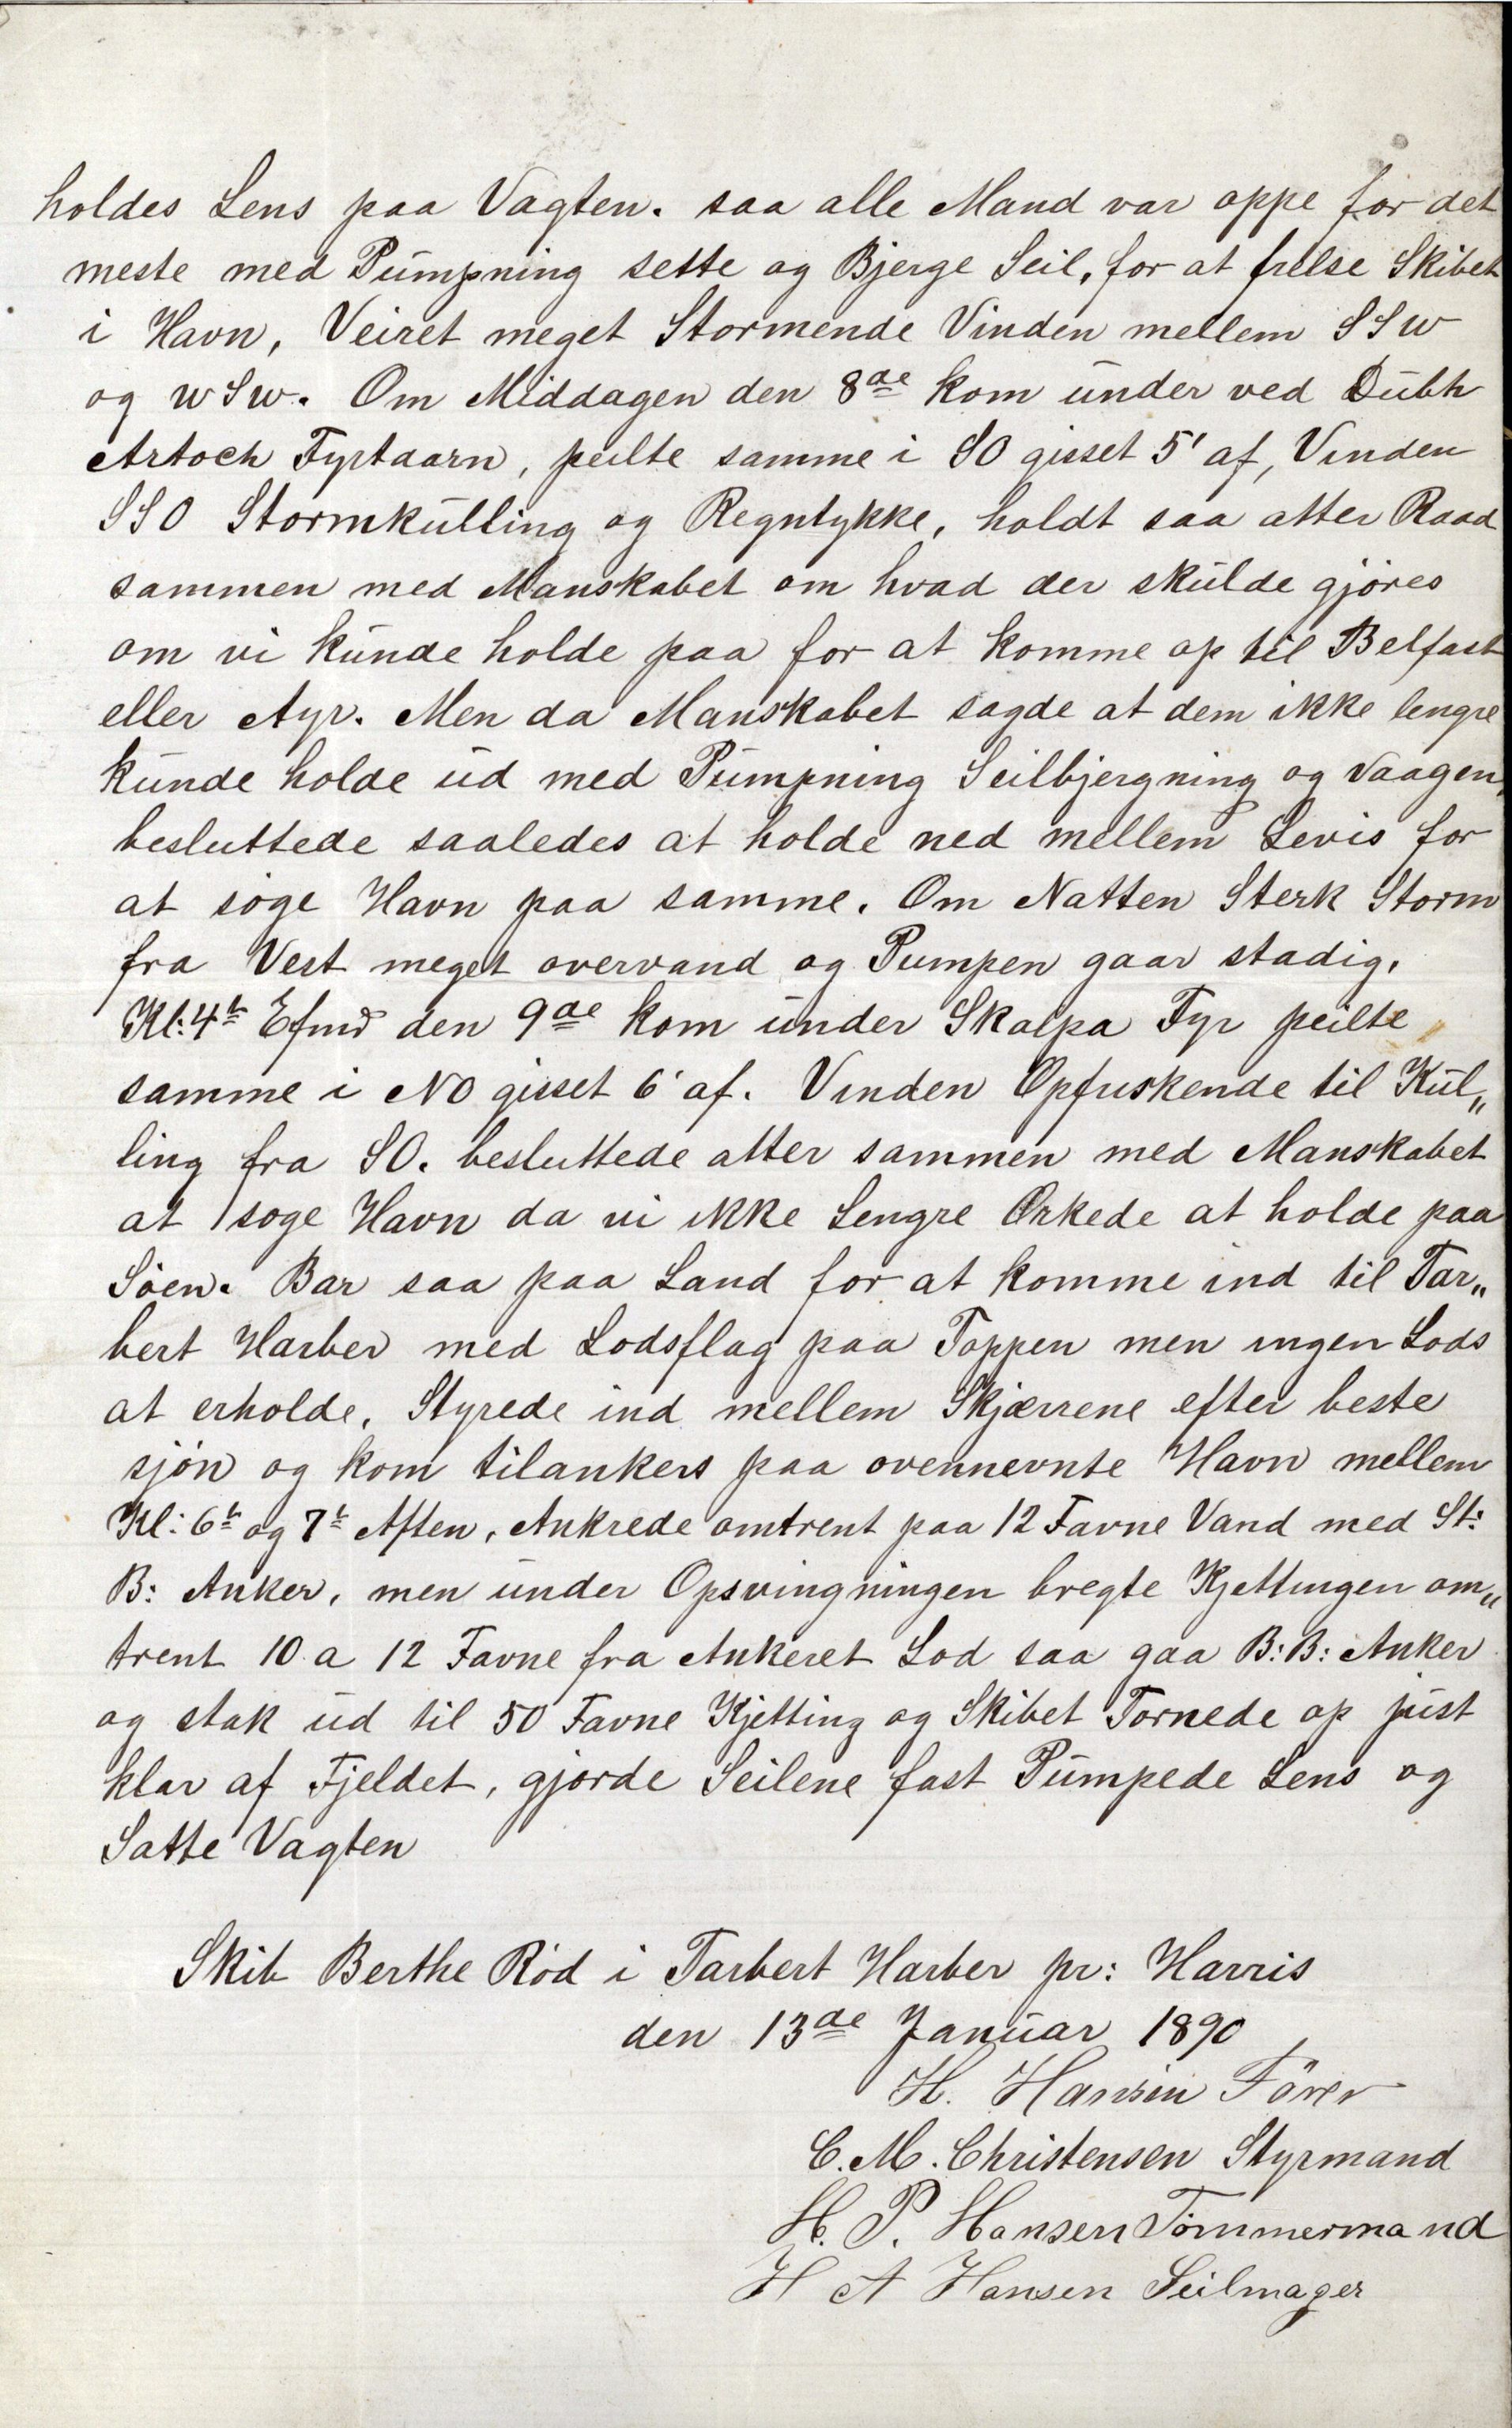 holdes Lens paa Vagten. saa alle Mand var oppe for det
meste med Pumpning sette og Bjerge Seil, for at frelse Skibet
i Havn, Veiret meget Stormende Vinden mellem SSW
og WSW. Om Middagen den 8de kom under ved Dubh
Artoch Fyrtaarn, peilte samme i SO gisset 5' af, Vinden
SSO Stormkulling og Regntykke, holdt saa atter Raad
sammen med Manskabet om hvad der skulde gjöres
om vi kunde holde paa for at komme op til Belfast
eller Ayr. Men da Manskabet sagde at dem ikke lengre
kunde holde ud med Pumpning Seilbjergning og Vaagen,
besluttede saaledes at holde ned mellem Levis for
at söge Havn paa samme. Om Natten Sterk Storm
fra Vest meget overvand og Pumpen gaar stadig.
Kl: 4h Efmd den 9de kom under Skalpa Fyr peilte
samme i NO gisset 6' af. Vinden Opfriskende til Kul„
ling fra SO. besluttede atter sammen med Manskabet
at soge Havn da vi ikke Lengre Orkede at holde paa
Söen. Bar saa paa Land for at komme ind til Tar„
bert Harber med Lodsflag paa Toppen men ingen Lods
at erholde. Styrede ind mellem Skjærrene efter beste
sjön og kom tilankers paa ovennevnte Havn mellem
Kl: 6h og 7h Aften. Ankrede omtrent paa 12 Favne Vand med St:
B: Anker, men under Opsvingningen bregte Kjettingen om„
trent 10 a 12 Favne fra Ankeret Lod saa gaa B: B: Anker
og stak ud til 50 Favne Kjetting og Skibet Tornede op just
klar af Fjeldet, gjorde Seilene fast Pumpede Lens og
Satte Vagten
Skib Berthe Röd i Tarbert Harber pr: Harris
den 13de Januar 1890
H. Hansen Förer
C. M. Christensen Styrmand
H. P. Hansen Tömmermand
H A Hansen Seilmager